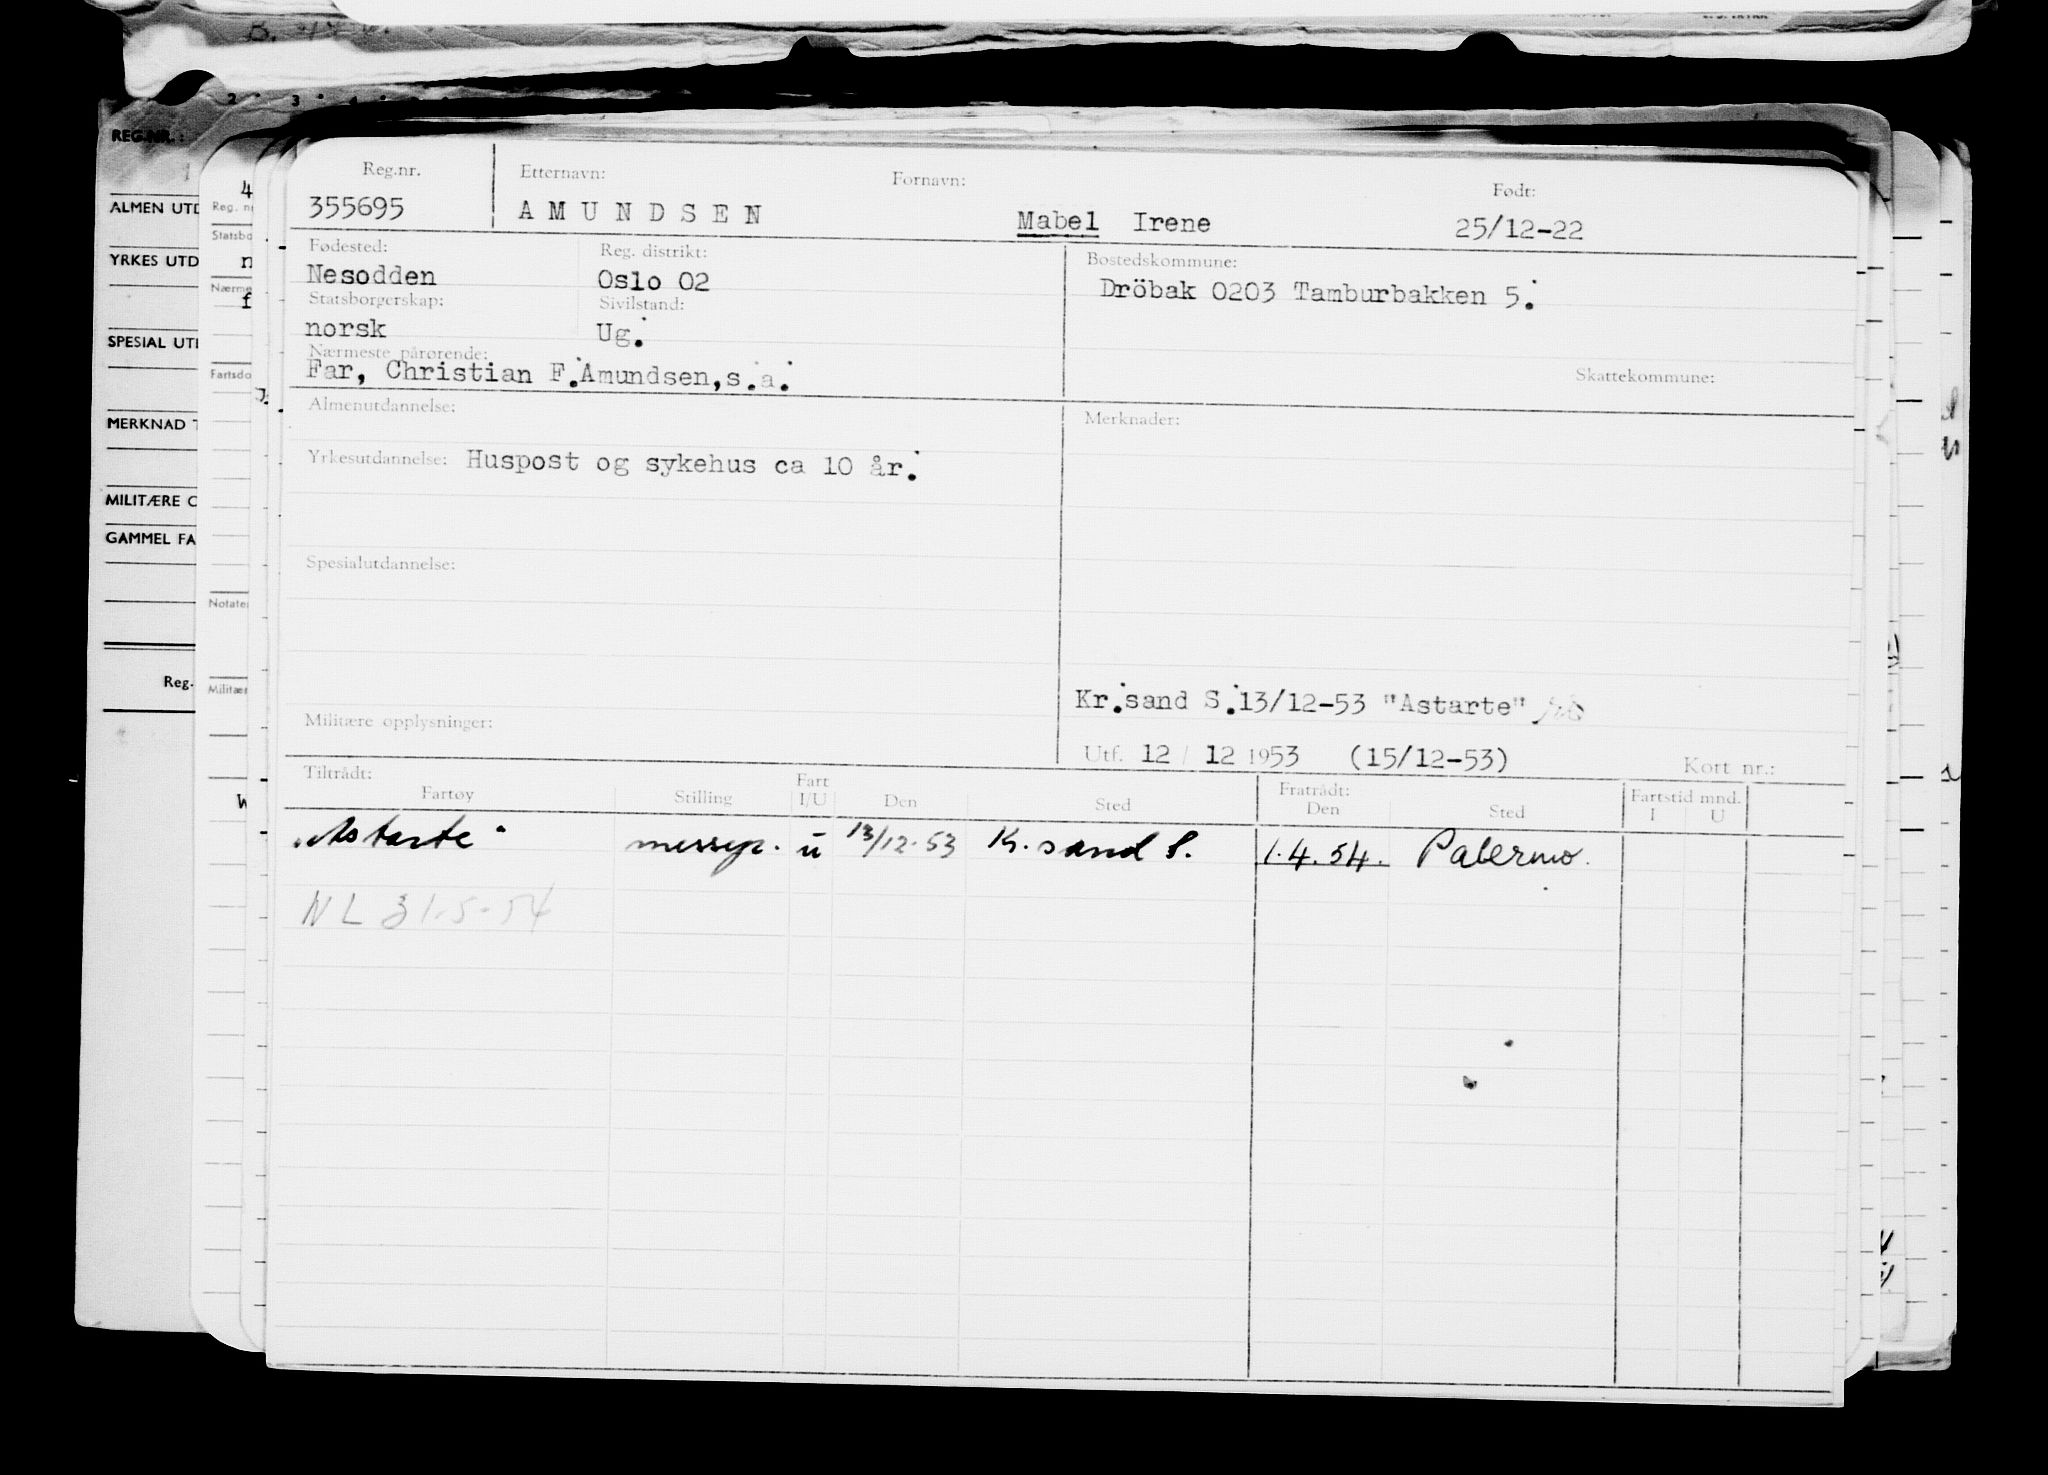 REG.NR.:
ALMEN UTD
YRKES UTD
SPECIAL UTI
MERKNAD T
MILITÆRE O
GAMMEL FA
Reg.-
Reg.nr. Etternavn: Fornavn: Født:
355695 AMUNDSEN Mabel Irene 25/12-22
Fødested: Reg. distrikt: Bostedskommune:
Nesodden Oslo 02 Dröbak 0203 Tamburbakken 5.
Statsborgerskap: Sivilstand:
norsk Ug.
Nærmeste pårørende:
Far, Christian F.Amundsen,s.a. Skattekommune:
Almenutdannelse: Merknader:
Yrkesutdannelse: Huspost og sykehus ca 10 år.
Spesialutdannelse:
Kr.sand S.13/12-53 "Astarte"
Militære opplysninger:
Utf. 12 / 12 1953 (15/12-53) Kort nr.:
Tiltrådt: Fratrådt:
Fartøy Stilling Fart I/U Den Sted Den Sted Fartstid mnd. I U
"Astarte" messep. u 13/12-53 Kr.sand S. 1.4.54. Palermo.
NL 31-5-54